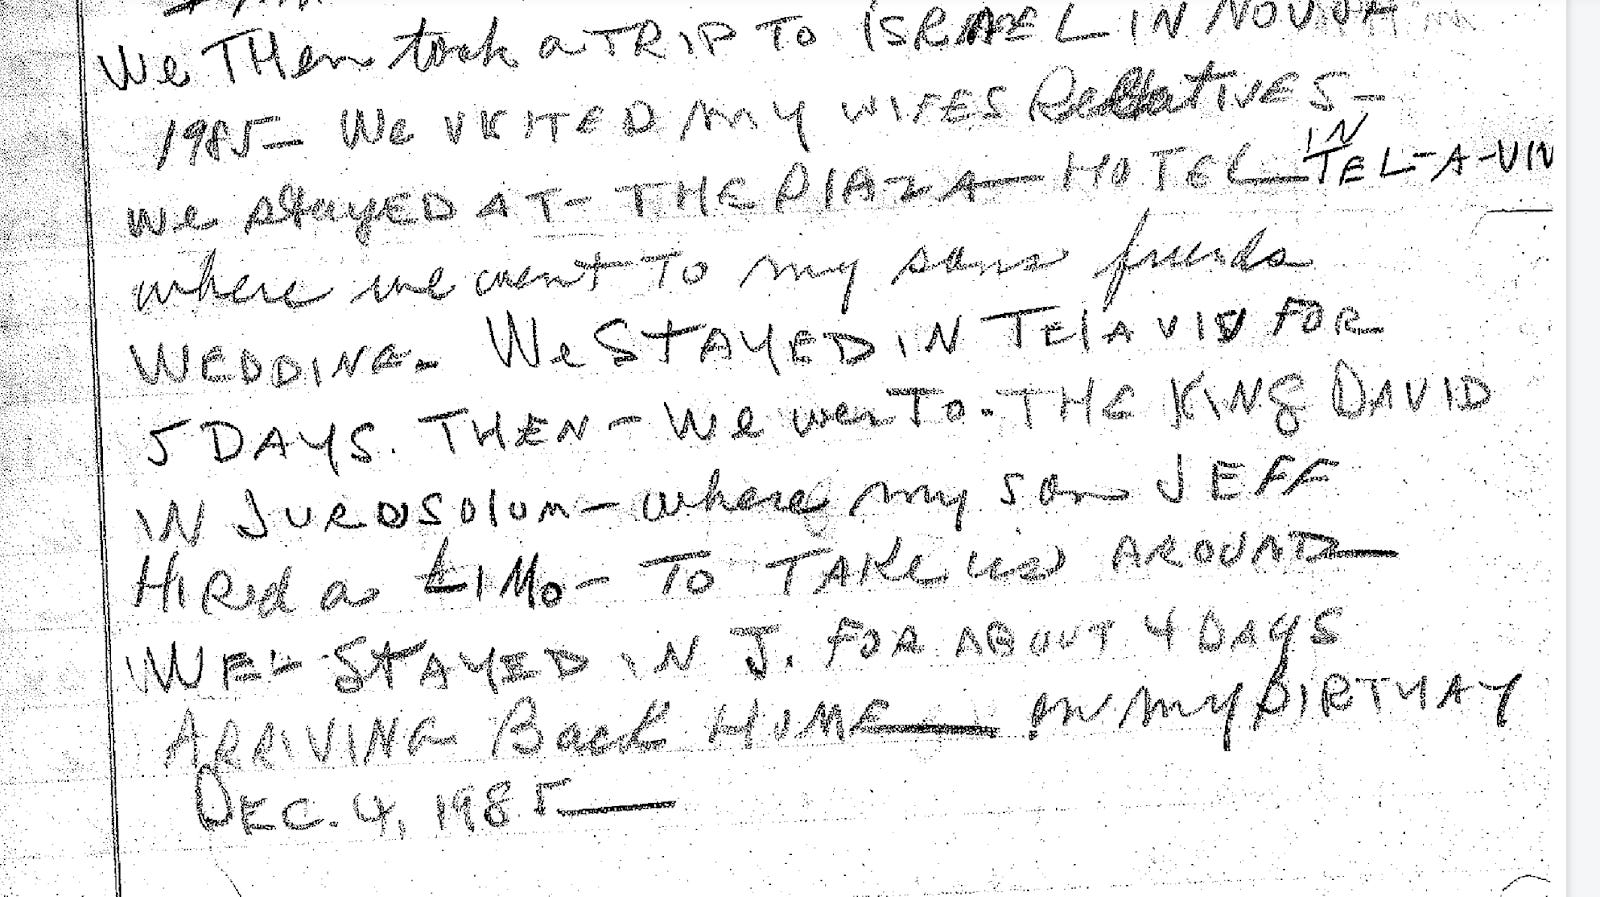 We THen took a TRIP TO ISRAEL IN
1985- We VISITED My WIFES RelatIVES-
we stayED AT- THE PlAZA-HOTEL- IN TEL-A-VIV
where we went To my sons friends
WEDDING. We STAYED IN TelAVIV FOR
5 DAYS. THEN- We wenTo. THE KING DAVID
IN JUROSOlUM- where my son JEFF
HIRed a LIMo- To TAKe us AROUND-
WE- STAYED IN J. FOR ABOUT 4 DAYS
ARRIVING Back HOME- on my BIRTHAY
DEC. 4, 1985-